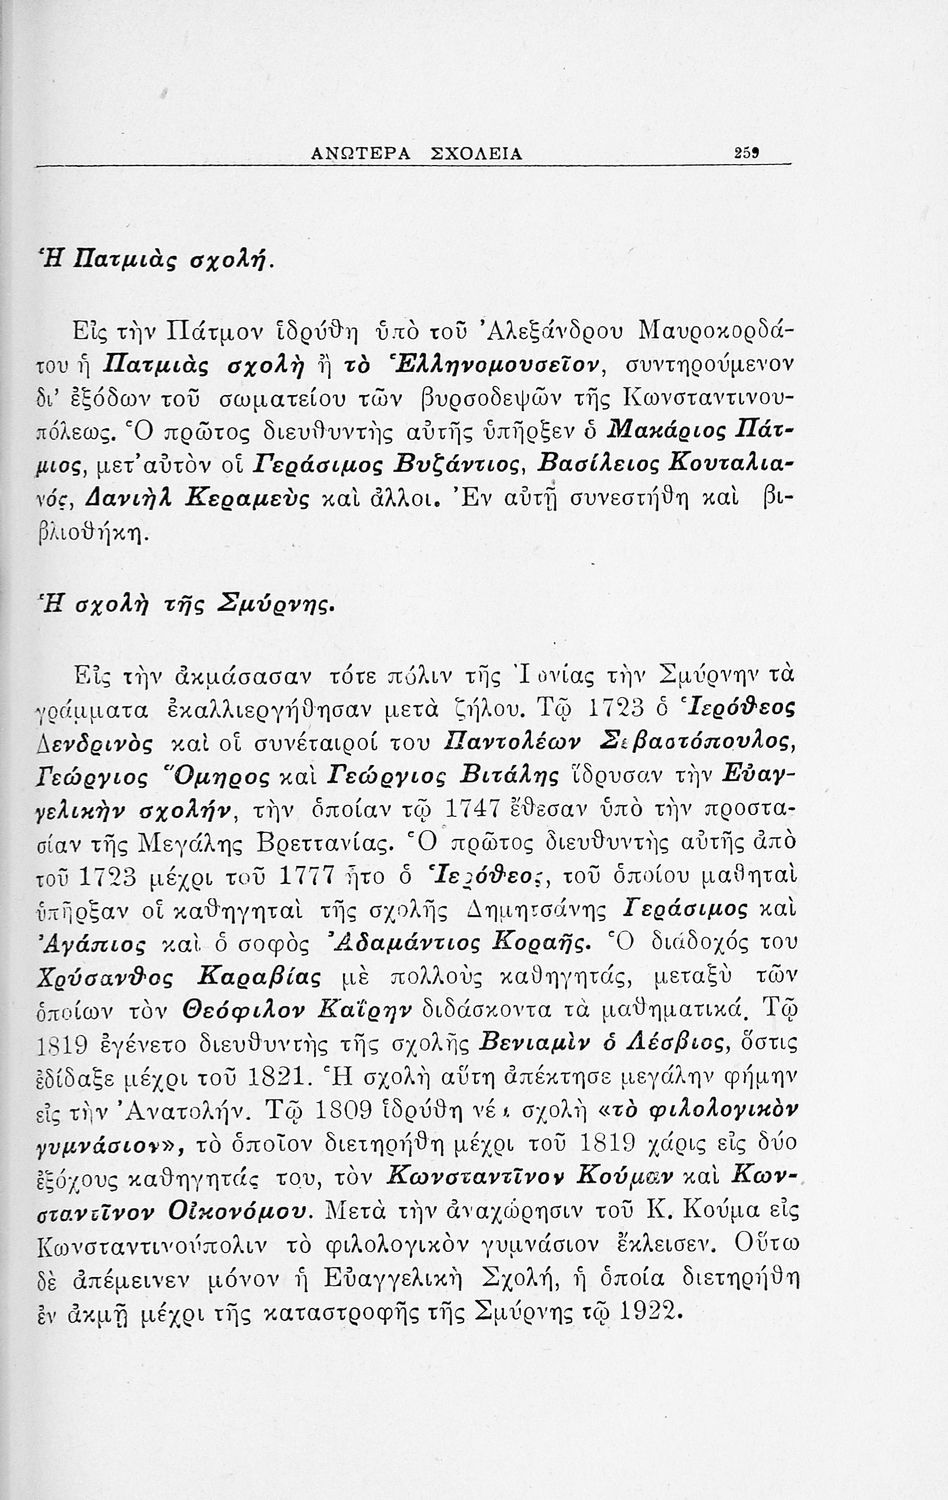 ΑΝΩΤΕΡΑ ΣΧΟΛΕΙΑ 259
Ἡ Πατμιὰς σχολή.
Εἰς τὴν Πάτμον ἱδρύθη ὑπὸ τοῦ Ἀλεξάνδρου Μαυροκορδά-
του ἡ Πατμιὰς σχολὴ ἢ τὸ Ἑλληνομουσεῖον, συντηρούμενον
δι' ἐξόδων τοῦ σωματείου τῶν βυρσοδεψῶν τῆς Κωνσταντινου-
πόλεως. Ὁ πρῶτος διευθυντὴς αὐτῆς ὑπῆρξεν ὁ Μακάριος Πάτ-
μιος, μετ' αὐτὸν οἱ Γεράσιμος Βυζάντιος, Βασίλειος Κουταλια-
νός, Δανιὴλ Κεραμεὺς καὶ ἄλλοι. Ἐν αὐτῇ συνεστήθη καὶ βι-
βλιοθήκη.
Ἡ σχολὴ τῆς Σμύρνης.
Εἰς τὴν ἀκμάσασαν τότε πόλιν τῆς Ἰωνίας τὴν Σμύρνην τὰ
γράμματα ἐκαλλιεργήθησαν μετὰ ζήλου. Τῷ 1723 ὁ Ἱερόθεος
Δενδρινὸς καὶ οἱ συνέταιροί του Παντολέων Σεβαστόπουλος,
Γεώργιος Ὅμηρος καὶ Γεώργιος Βιτάλης ἵδρυσαν τὴν Εὐαγ-
γελικὴν σχολήν, τὴν ὁποίαν τῷ 1747 ἔθεσαν ὑπὸ τὴν προστα-
σίαν τῆς Μεγάλης Βρεττανίας. Ὁ πρῶτος διευθυντὴς αὐτῆς ἀπὸ
τοῦ 1723 μέχρι τοῦ 1777 ἦτο ὁ Ἱερόθεος, τοῦ ὁποίου μαθηταὶ
ὑπῆρξαν οἱ καθηγηταὶ τῆς σχολῆς Δημητσάνης Γεράσιμος καὶ
Ἀγάπιος καὶ ὁ σοφὸς Ἀδαμάντιος Κοραῆς. Ὁ διάδοχός του
Χρύσανθος Καραβίας μὲ πολλοὺς καθηγητάς, μεταξὺ τῶν
ὁποίων τὸν Θεόφιλον Καΐρην διδάσκοντα τὰ μαθηματικά. Τῷ
1819 ἐγένετο διευθυντὴς τῆς σχολῆς Βενιαμὶν ὁ Λέσβιος, ὅστις
ἐδίδαξε μέχρι τοῦ 1821. Ἡ σχολὴ αὕτη ἀπέκτησε μεγάλην φήμην
εἰς τὴν Ἀνατολήν. Τῷ 1809 ἱδρύθη νέα σχολὴ «τὸ φιλολογικὸν
γυμνάσιον», τὸ ὁποῖον διετηρήθη μέχρι τοῦ 1819 χάρις εἰς δύο
ἐξόχους καθηγητάς του, τὸν Κωνσταντῖνον Κούμαν καὶ Κων-
σταντῖνον Οἰκονόμου. Μετὰ τὴν ἀναχώρησιν τοῦ Κ. Κούμα εἰς
Κωνσταντινούπολιν τὸ φιλολογικὸν γυμνάσιον ἔκλεισεν. Οὕτω
δὲ ἀπέμεινεν μόνον ἡ Εὐαγγελικὴ Σχολή, ἡ ὁποία διετηρήθη
ἐν ἀκμῇ μέχρι τῆς καταστροφῆς τῆς Σμύρνης τῷ 1922.